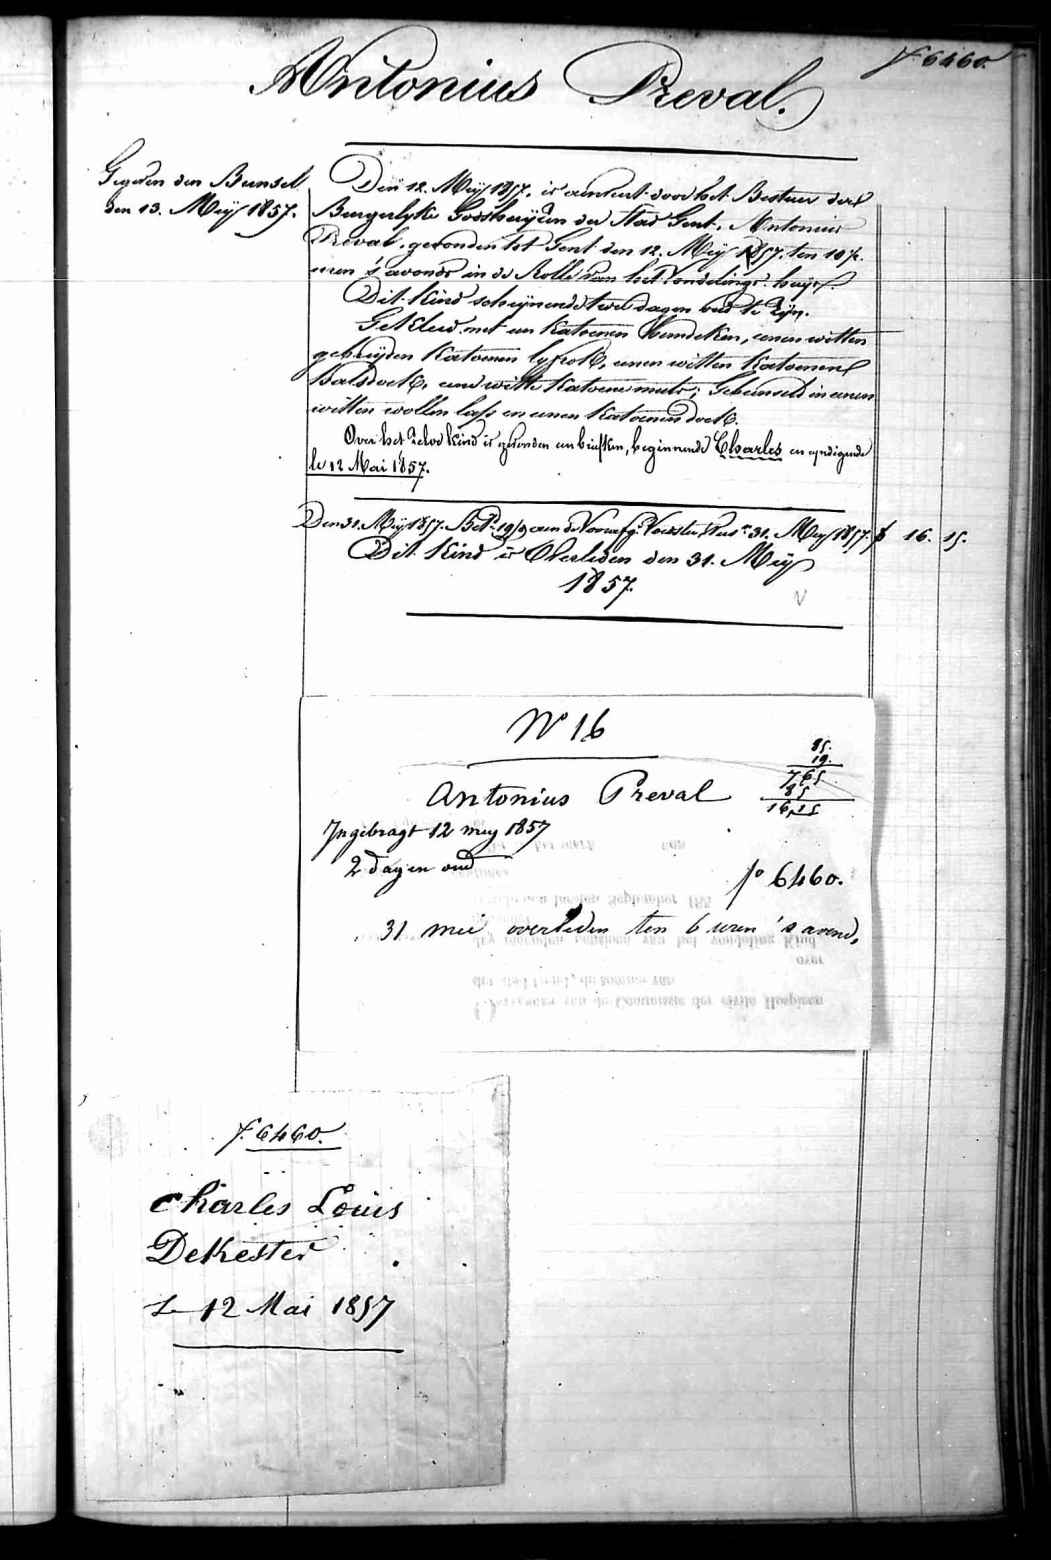 f° 6460.
Antonius Preval.
Gegeven den Bunsel
den 13. Meij 1857.
Den 12. Meij 1857. is aenveert door het Bestuer der
Burgerlyke Godshuijzen der stad Gent, Antonius
Preval, gevonden tot Gent den 12. Meij 1857. ten 10 ½
uren 's avonds in de Rolle van het Vondelings-huijs.
Dit kind schijnende twee dagen oud te zijn.
Gekleed met een katoenen hemdeken, eenen witten
gebreijden katoenen lyfrok, eenen witten katoenen
halsdoek, eene witte katoene muts; Gebunseld in eenen
witten wollen lap en eenen katoenen doek.
Over het zelve kind is gevonden een briefken, beginnende Charles en eyndigende
le 12 Mai 1857.
Den 31. Meij 1857. Bet. 19/d aen de Voedster 31. Meij 1857. f 16. 15.
Dit kind is Overleden den 31. Meij
1857.
N° 16
85.
19.
765
85
16,15
Antonius Preval
Ingebragt 12 mey 1857
2 dagen oud
f° 6460.
31 mei overleden ten 6 uren 's avond.
f. 6460.
Charles Louis
DeKester
Le 12 Mai 1857